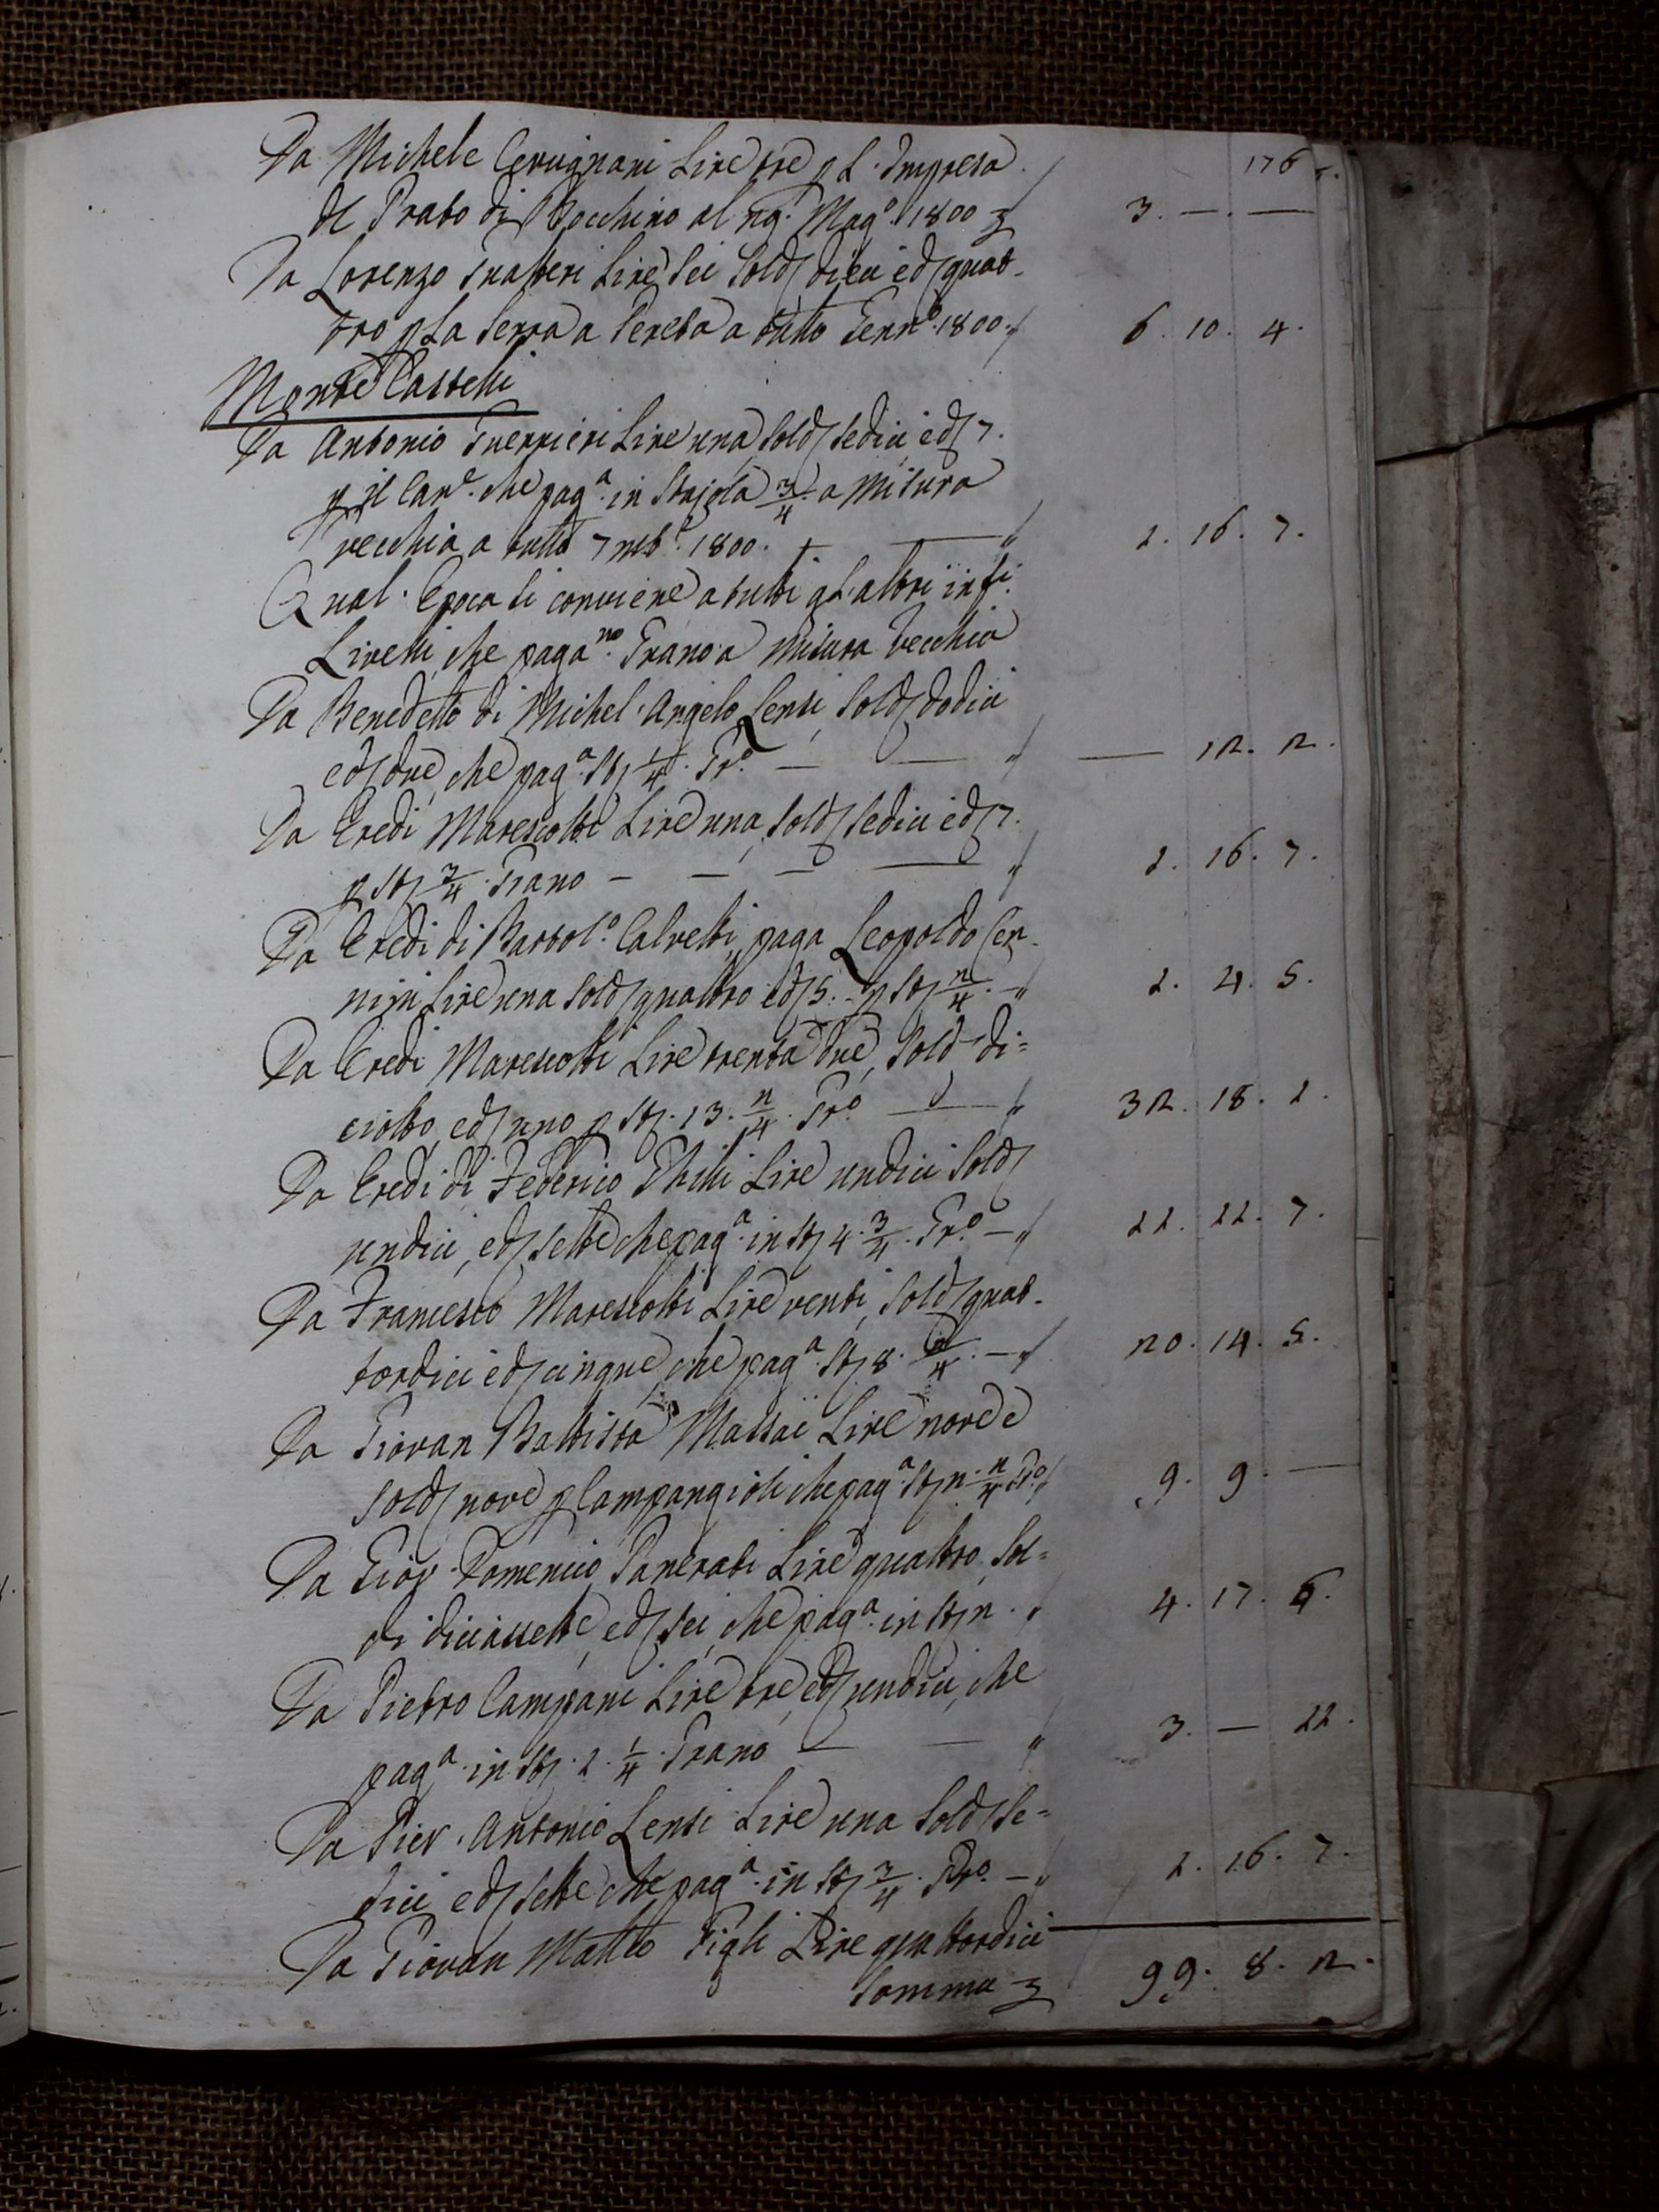 176
Da Michele Cerugnani Lire tre p L'Impresa
del Prato di Bocchino al 29. Mag.º 1800 3. — . —
Da Lorenzo Gualteri Lire Sei Sold dieci e d quat-
tro p La Serra a Pereta a tutto Genn.º 1800 6. 10. 4.
Monte Castelli
Da Antonio Guerrieri Lire una, Sold sedici, e d 7.
p il Can.e che pag.a in Staiola 3/4 a Misura
vecchia a tutto 7mb.e 1800. 1. 16. 7.
Qual' Epoca si conviene a tutti gl'altri inf.i
Livelli, che paga.no Grano a Misura Vecchia
Da Benedetto di Michel' Angelo Lensi, Sold dodici
e d due, che pag.a St 1/4. Gr.º — — — 12. 2.
Da Eredi Marescotti Lire una, Sold sedici e d 7.
p St 3/4. Grano — — — — 1. 16. 7.
Da Eredi di Bartol.º Calvetti, paga Leopoldo Cer-
nini Lire una Sold quattro e d 5. p St 2/4. — 1. 4. 5.
Da Eredi Marescotti Lire trenta due, Sold di=
ciotto, e d uno p St. 13. 2/4. Gr.º — 32. 18. 1.
Da Eredi di Federico Ghilli Lire undici Sold
undici, e d sette che pag.a in St 4. 3/4. Gr.º — 11. 11. 7.
Da Francesco Marescotti Lire venti, Sold quat-
tordici e d cinque, che pag.a St 8. 2/4. — 20. 14. 5.
Da Giovan Battista Massai Lire nove e
Sold nove p Campangioli che pag.a St 2. 2/4 Gr.º 9. 9. —
Da Giov. Domenico Panerati Lire quattro, Sol=
di diciassette, e d sei, che pag.a in St 2. 4. 17. 6.
Da Pietro Campani Lire tre, e d undici, che
pag.a in St. 1. 1/4. Grano — — 3. — 11.
Da Pier' Antonio Lensi Lire una Sold Se=
dici e d sette che pag.a in St 3/4. Gr.º — 1. 16. 7.
Da Giovan Matteo Figli Lire quattordici
Somma 99. 8. 2.